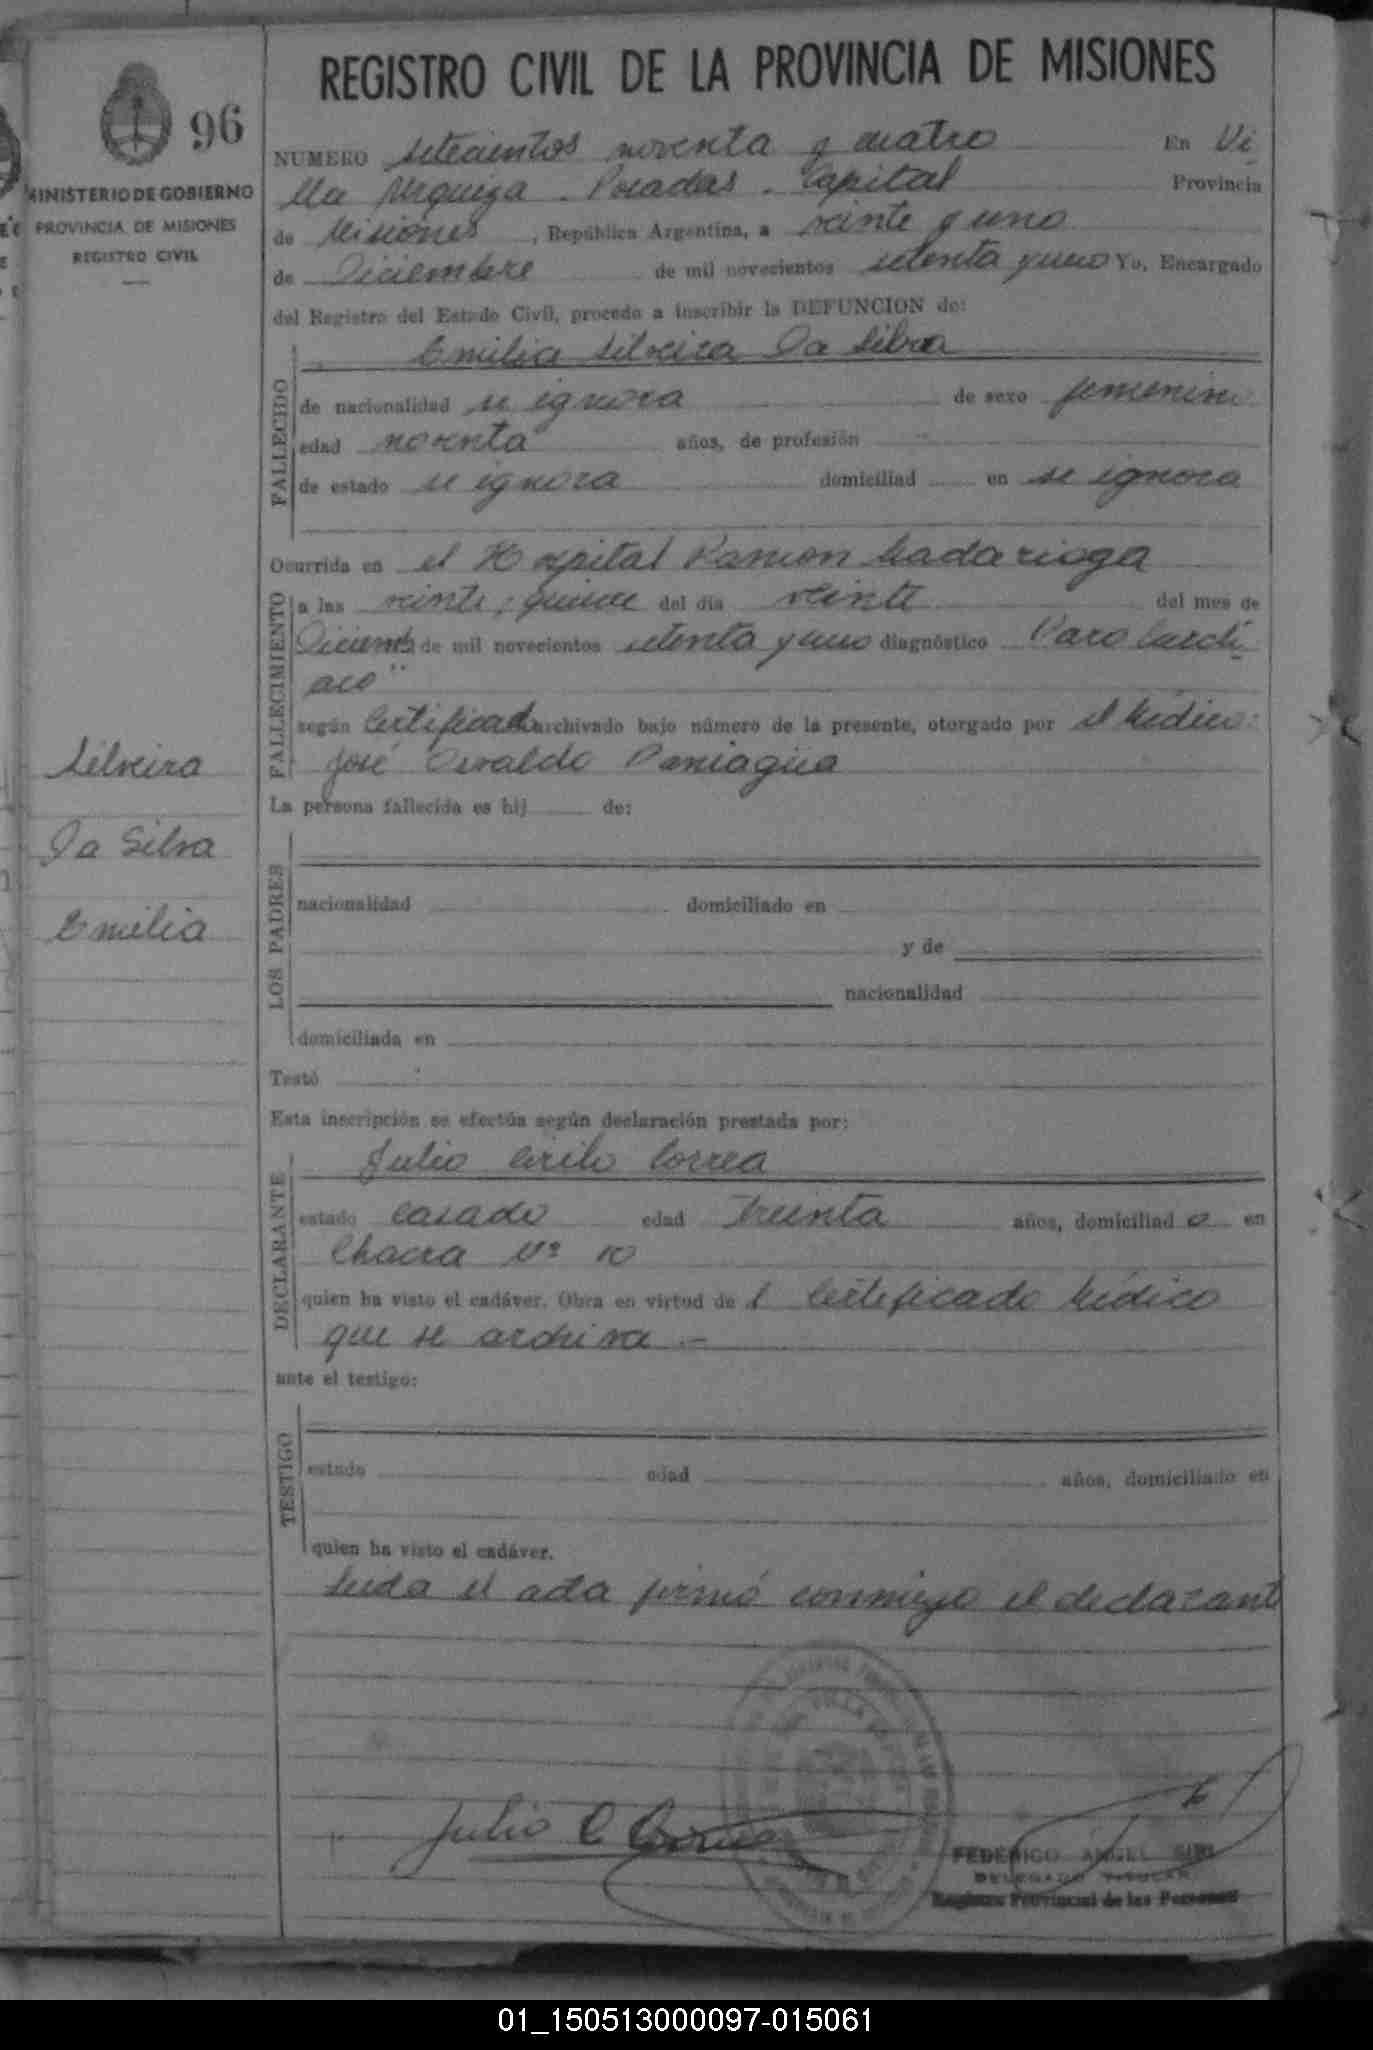 REGISTRO CIVIL DE LA PROVINCIA DE MISIONES
96
MINISTERIO DE GOBIERNO
PROVINCIA DE MISIONES
REGISTRO CIVIL
NUMERO setecientos noventa y cuatro En Vi
lla Urquiza. Posadas. Capital Provincia
de Misiones, República Argentina, a veinte y uno
de Diciembre de mil novecientos setenta y uno Yo, Encargado
del Registro del Estado Civil, procedo a inscribir la DEFUNCION de:
Emilia Silveira Da Silva
FALLECIDO
de nacionalidad se ignora de sexo femenino
edad noventa años, de profesión
de estado se ignora domiciliad en se ignora
Ocurrida en el Hospital Ramon Madariaga
FALLECIMIENTO
a las veinte, quince del día veinte del mes de
Diciemb de mil novecientos setenta y uno diagnóstico "Paro Cardi
aco"
según Certificado archivado bajo número de la presente, otorgado por el Médico:
José Osvaldo Paniagua
Silveira
Da Silva
Emilia
La persona fallecida es hij de:
LOS PADRES
nacionalidad domiciliado en
y de
nacionalidad
domiciliada en
Testó
Esta inscripción se efectúa según declaración prestada por:
DECLARANTE
Julio Cirilo Correa
estado casado edad Treinta años, domiciliad o en
Chacra Nº 10
quien ha visto el cadáver. Obra en virtud de l Certificado Médico
que se archiva.-
ante el testigo:
TESTIGO
estado edad años, domiciliado en
quien ha visto el cadáver.
Leida el acta firmó conmigo el declarant
Julio C Correa
FEDERICO ANGEL
DELEGADO TITULAR
Registro Provincial de las Personas
01_150513000097-015061